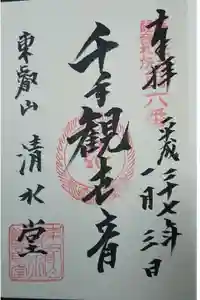 奉拝
平成二十七年
一月三日
千手観世音
東叡山
清水堂